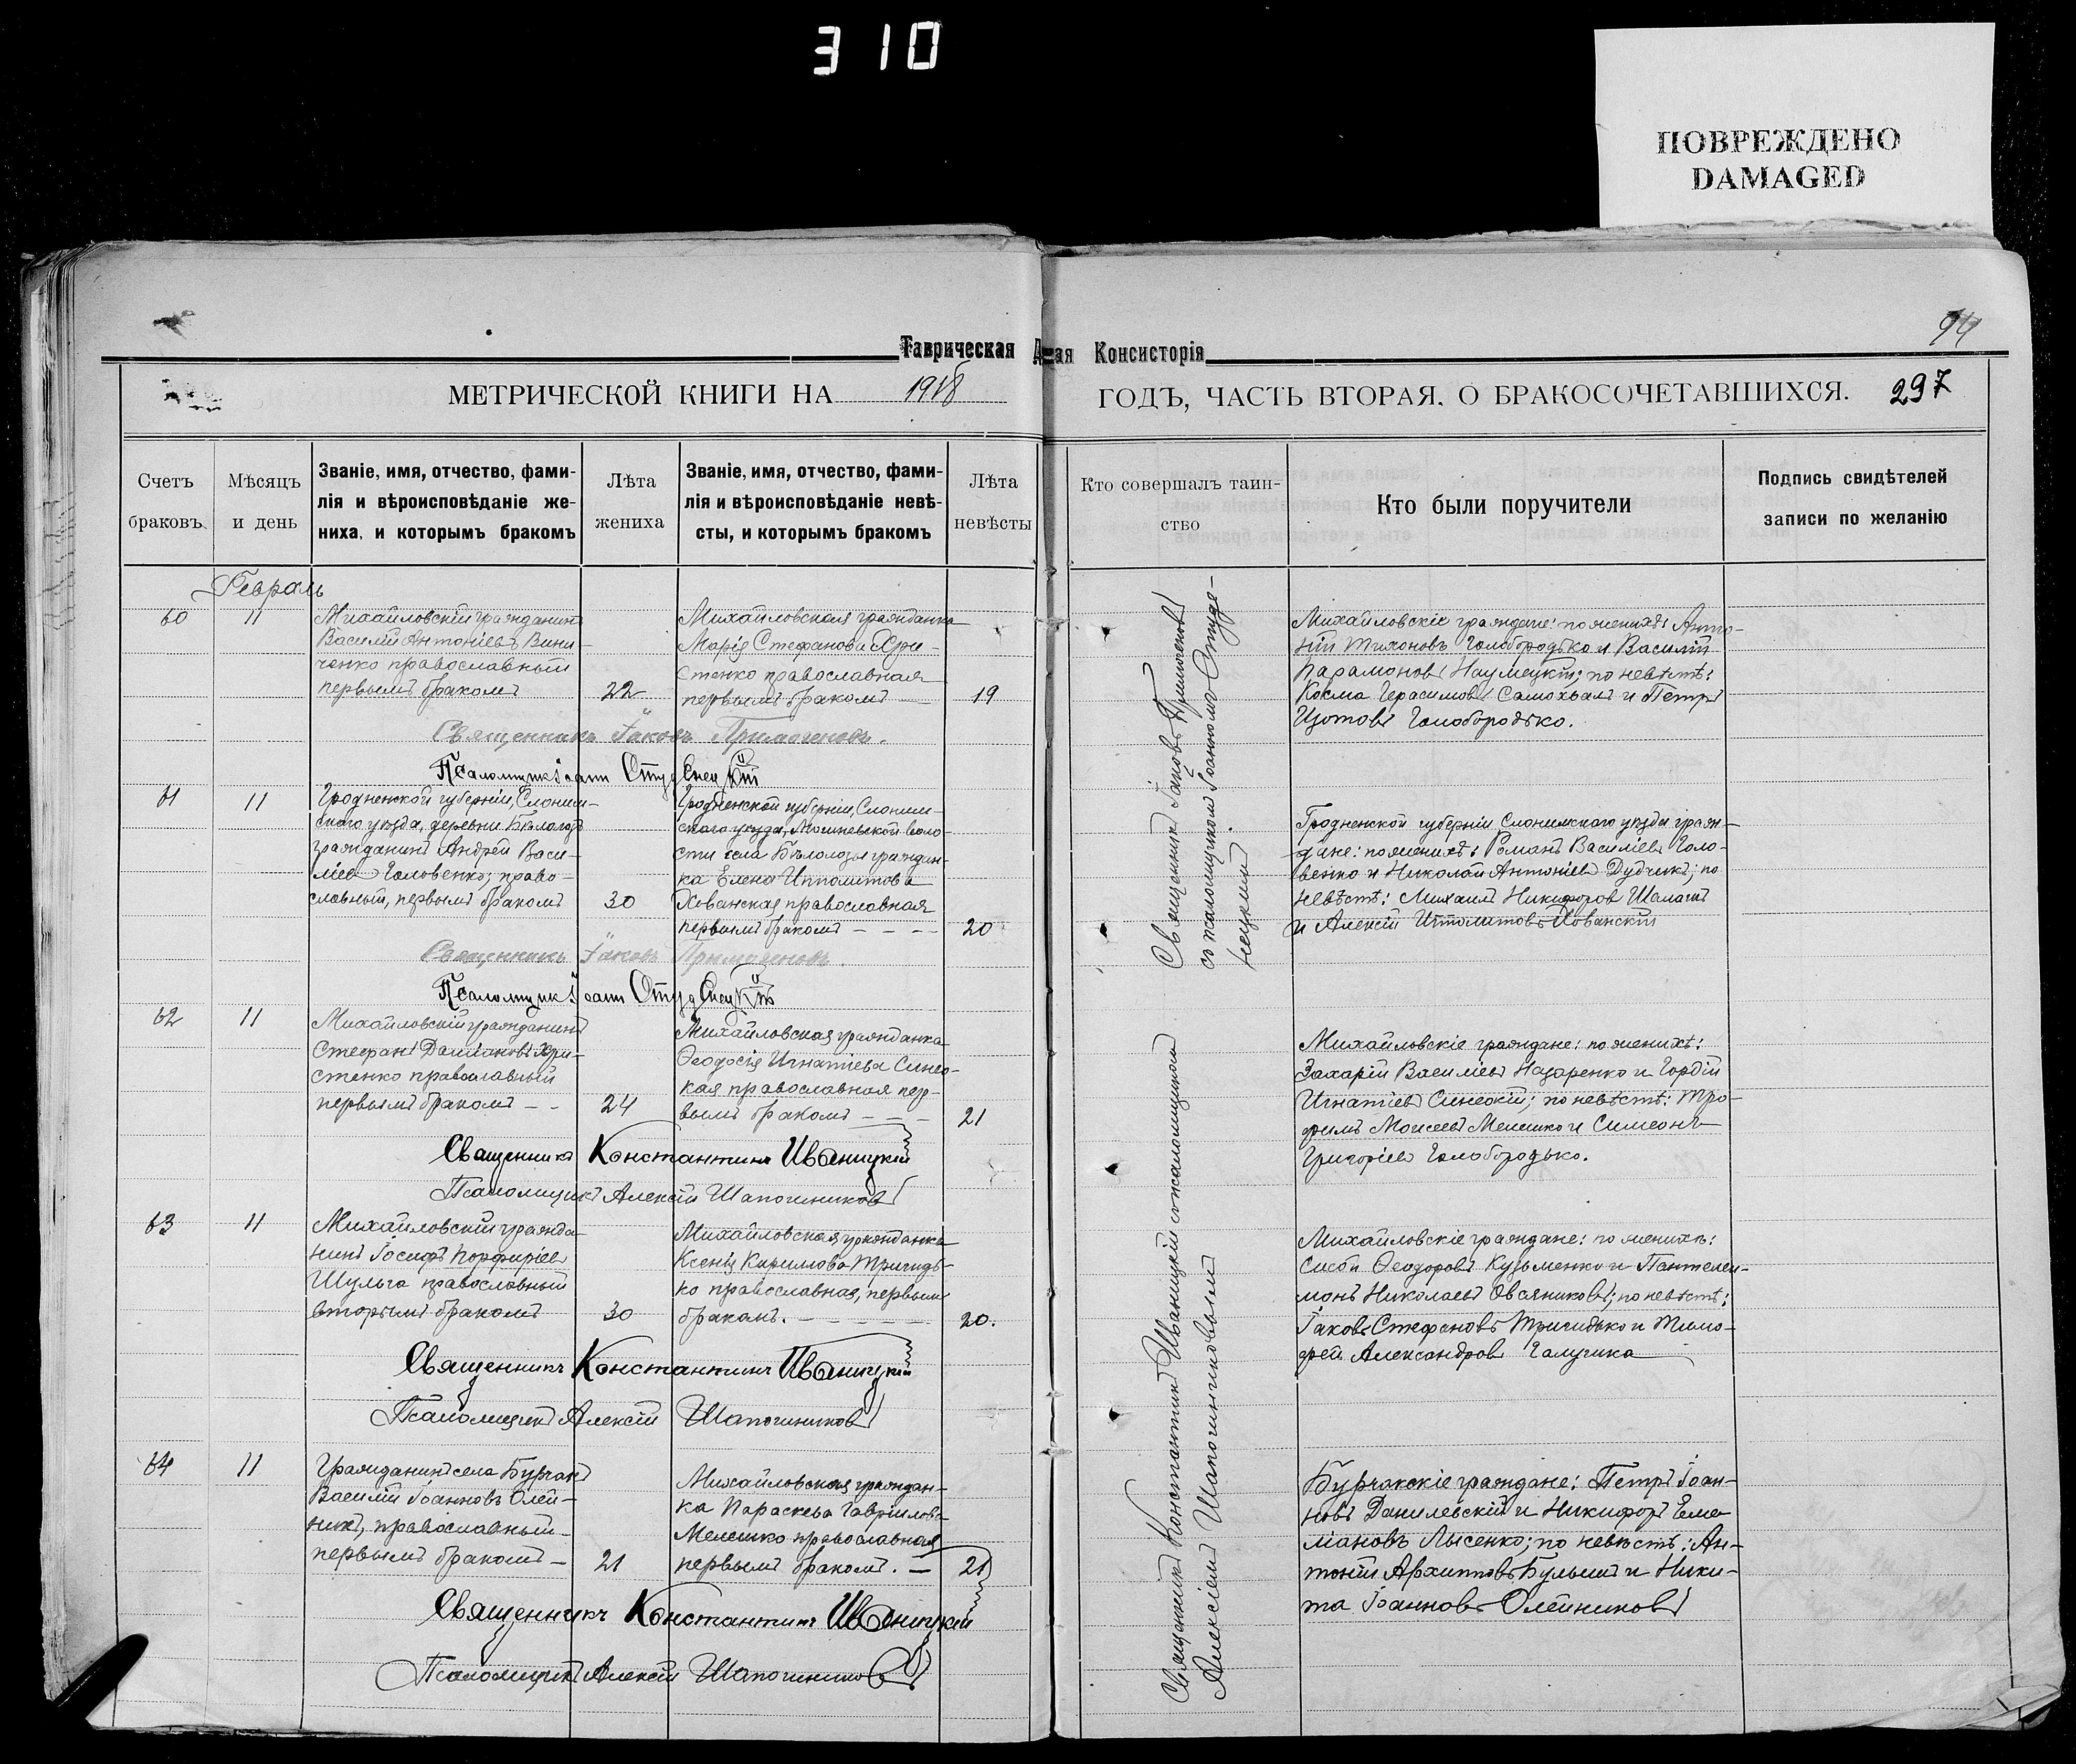 310
ПОВРЕЖДЕНО
DAMAGED
94
Таврическая
Консисторія
МЕТРИЧЕСКОЙ КНИГИ НА 1918
ГОДЪ, ЧАСТЬ ВТОРАЯ, О БРАКОСОЧЕТАВШИХСЯ. 297
Счетъ
браковъ
Мѣсяцъ
и день
Званіе, имя, отчество, фами-
лія и вѣроисповѣданіе же-
ниха, и которымъ бракомъ
Лѣта
жениха
Званіе, имя, отчество, фами-
лія и вѣроисповѣданіе невѣ-
сты, и которымъ бракомъ
Лѣта
невѣсты
Кто совершалъ таин-
ство
Кто были поручители
Подпись свидѣтелей
записи по желанію
Февраль
60
11
Михайловскій гражданинъ
Василій Антоніевъ Вини-
ченко православный
первымъ бракомъ
22
Михайловская гражданка
Марія Стефанова Хри-
стенко православная
первымъ бракомъ
19
Михайловскіе граждане: по женихѣ: Анто-
ній Тихоновъ Голобородько и Василій
Парамоновъ Наумецкій; по невѣстѣ:
Косма Герасимовъ Самохвалъ и Петръ
Голобородько.
Священникъ Іаковъ Примогеновъ.
Псаломщикъ Іоаннъ Студенецкій
61
11
Гродненской губерніи, Слоним-
скаго уѣзда, деревни
гражданинъ Андрей Васи-
ліевъ Головенко; право-
славный, первымъ бракомъ
30
Гродненской губерніи, Слоним-
скаго уѣзда, воло-
сти села граждан-
ка Елена Ипполитова
Хованская православная
первымъ бракомъ – – –
20
Гродненской губерніи Слонимскаго уѣзда граж-
дане: по женихѣ: Романъ Василіевъ Голо-
венко и Николай Антоніевъ Дубчикъ; по
невѣстѣ: Михаилъ Никифоровъ
и Алексій Ипполитовъ Хованскій
Священникъ Іаковъ Примогеновъ.
Псаломщикъ Іоаннъ Студенецкій
Священникъ Іаковъ Примогеновъ
съ псаломщикомъ Іоанномъ Студе-
нецкимъ.
62
11
Михайловскій гражданинъ
Стефанъ Даміановъ Хри-
стенко православный
первымъ бракомъ – –
24
Михайловская гражданка
Ѳеодосія Игнатіева Синео-
кая православная пер-
вымъ бракомъ – –
21
Михайловскіе граждане: по женихѣ:
Захарій Василіевъ Назаренко и Гордій
Игнатіевъ Синеокій; по невѣстѣ: Тро-
фимъ Моисеевъ Мелешко и Симеонъ
Григоріевъ Голобородько.
Священникъ Константинъ Иваницкій
Псаломщикъ Алексій Шапошниковъ
63
11
Михайловскій гражда-
нинъ Іосифъ Порфиріевъ
Шульга православный
вторымъ бракомъ
30
Михайловская гражданка
Ксенія Кириллова Тригидь-
ко православная, первымъ
бракомъ. – – – –
20.
Михайловскіе граждане: по женихѣ:
Сисой Ѳеодоровъ Кузьменко и Пантелеи-
монъ Николаевъ Овсяниковъ; по невѣстѣ:
Іаковъ Стефановъ Тригидько и Тимо-
фей Александровъ
Священникъ Константинъ Иваницкій
Псаломщикъ Алексій Шапошниковъ
64
11
Гражданинъ села Бурчакъ
Василій Іоанновъ Олей-
никъ, православный
первымъ бракомъ –
21
Михайловская граждан-
ка Параскева Гавріилова
Мелешко православная
первымъ бракомъ. –
21
Бурчакскіе граждане: Петръ Іоан-
новъ Данилевскій и Никифоръ Еме-
ліановъ Лысенко; по невѣстѣ: Ан-
тоній Архиповъ и Ники-
та Іоанновъ Олейниковъ
Священникъ Константинъ Иваницкій
Псаломщикъ Алексій Шапошниковъ
Священникъ Константинъ Иваницкій съ псаломщикомъ
Алексіемъ Шапошниковымъ